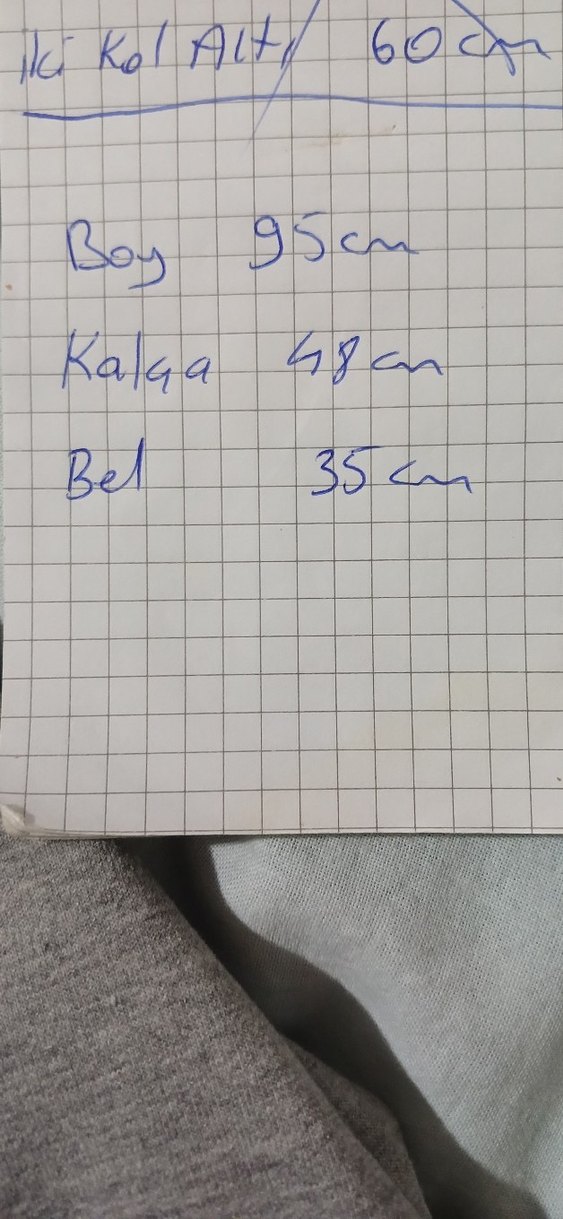 iki Kol Altı 60 cm
Boy 95 cm
Kalça 48 cm
Bel 35 cm